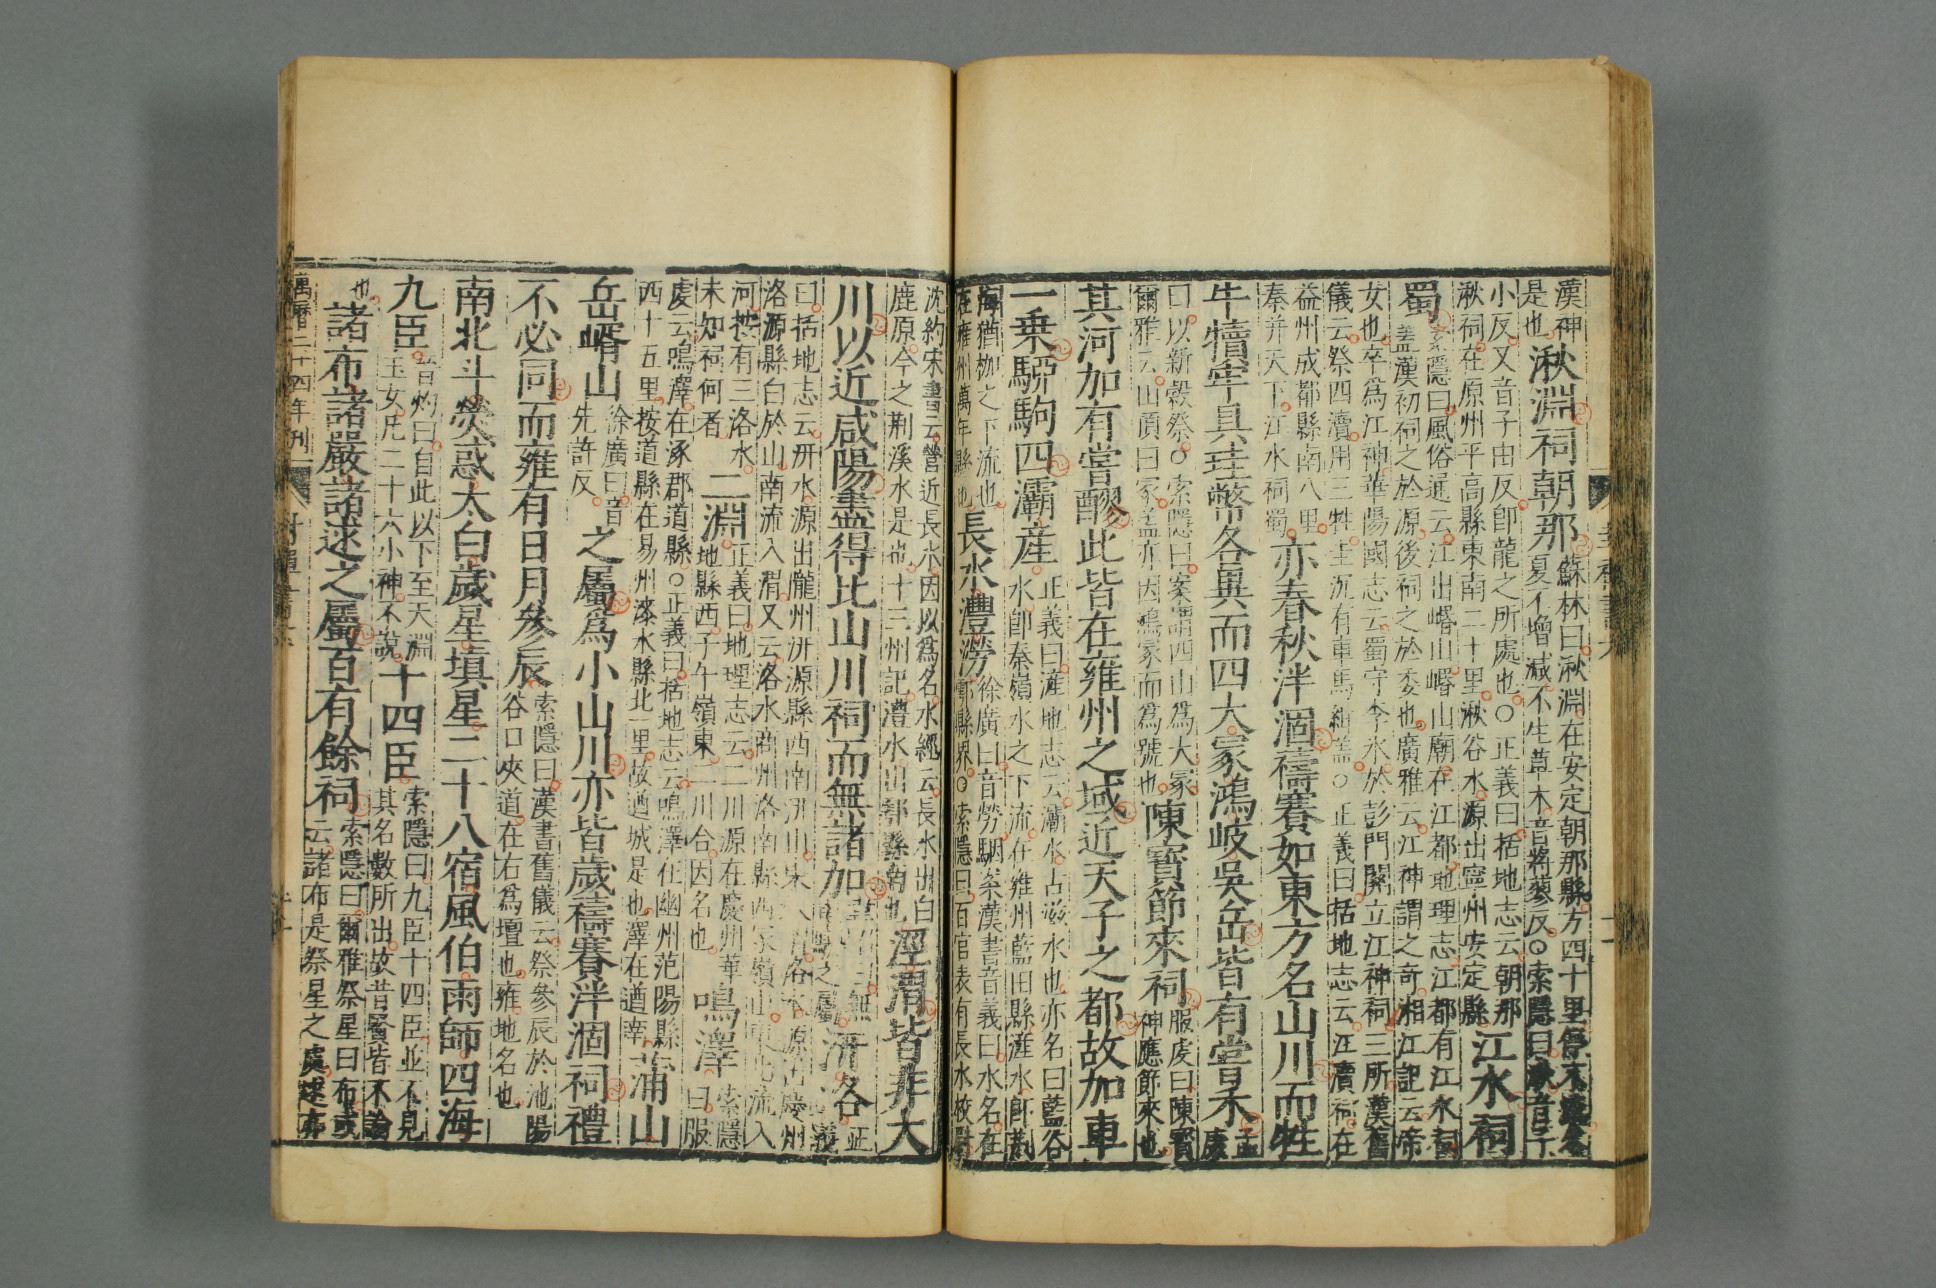 漢神
是也
湫淵祠朝那
蘇林曰湫淵在安定朝那縣方四十里停不流冬
夏不增減不生草木音將蓼反○索隱曰湫音子
小反又音子由反卽龍之所處也○正義曰括地志云朝那
湫祠在原州平高縣東南二十里湫谷水源出寧州安定縣
江水祠
蜀
索隱曰風俗通云江出㟭山㟭山廟在江都地理志江都有江水祠
蓋漢初祠之於源後祠之於委也廣雅云江神謂之奇相江記云帝
女也卒爲江神華陽國志云蜀守李氷於彭門闕立江神祠三所漢舊
儀云祭四瀆用三牲圭沉有車馬紺蓋○正義曰括地志云江瀆祠在
益州成都縣南八里
秦并天下江水祠蜀
亦春秋泮涸禱賽如東方名山川而牲
牛犢牢具珪幣各異而四大冢鴻岐吳岳皆有嘗禾
孟康
曰以新穀祭○索隱曰案謂四山爲大冢
爾雅云山頂曰冢蓋亦因鴻冢而爲號也
陳寶節來祠
服虔曰陳寶
神應節來也
其河加有嘗醪此皆在雍州之域近天子之都故加車
一乗駵駒四灞産
正義曰滻地志云灞水古滋水也亦名曰藍谷
水卽秦嶺水之下流在雍州藍田縣滻水卽荊
溪狗枷之下流也
在雍州萬年縣也
長水灃澇
徐廣曰音勞駰案漢書音義曰水名在
鄠縣界○索隱曰百官表有長水校尉
沈約宋書云營近長水因以爲名水經云長水出白
鹿原今之荆溪水是也十三州記灃水出鄠縣南也
涇渭皆非大
川以近咸陽盡得比山川祠而無諸加
無
之屬
汧洛
正義
曰括地志云汧水源出隴州汧源縣西南汧山東入渭洛水源出慶州
洛源縣白於山南流入渭又云洛水商州洛南縣西冢嶺山東北流入
河按有三洛水
未知祠何者
二淵
正義曰地理志云二川源在慶州華
地縣西子午嶺東二川合因名也
鳴澤
索隱曰服
虔云鳴澤在涿郡道縣○正義曰括地志云鳴澤在幽州范陽縣
西十五里按道縣在易州淶水縣北一里故遒城是也澤在遒南
蒲山
岳㟯山
徐廣曰音
先許反
之屬爲小山川亦皆歲禱賽泮涸祠禮
不必同而雍有日月參辰
索隱曰漢書舊儀云祭參辰於池陽
谷口夾道在右爲壇也雍地名也
南北斗熒惑太白歲星塡星二十八宿風伯雨師四海
九臣
晉灼曰自此以下至天淵
玉女凡二十六小神不說
十四臣
索隱曰九臣十四臣並不見
其名數所出故昔賢皆不論
也
諸布諸嚴諸逑之屬百有餘祠
索隱曰爾雅祭星曰布或
云諸布是祭星之處逑亦
萬曆二十四年刊
封禪書六